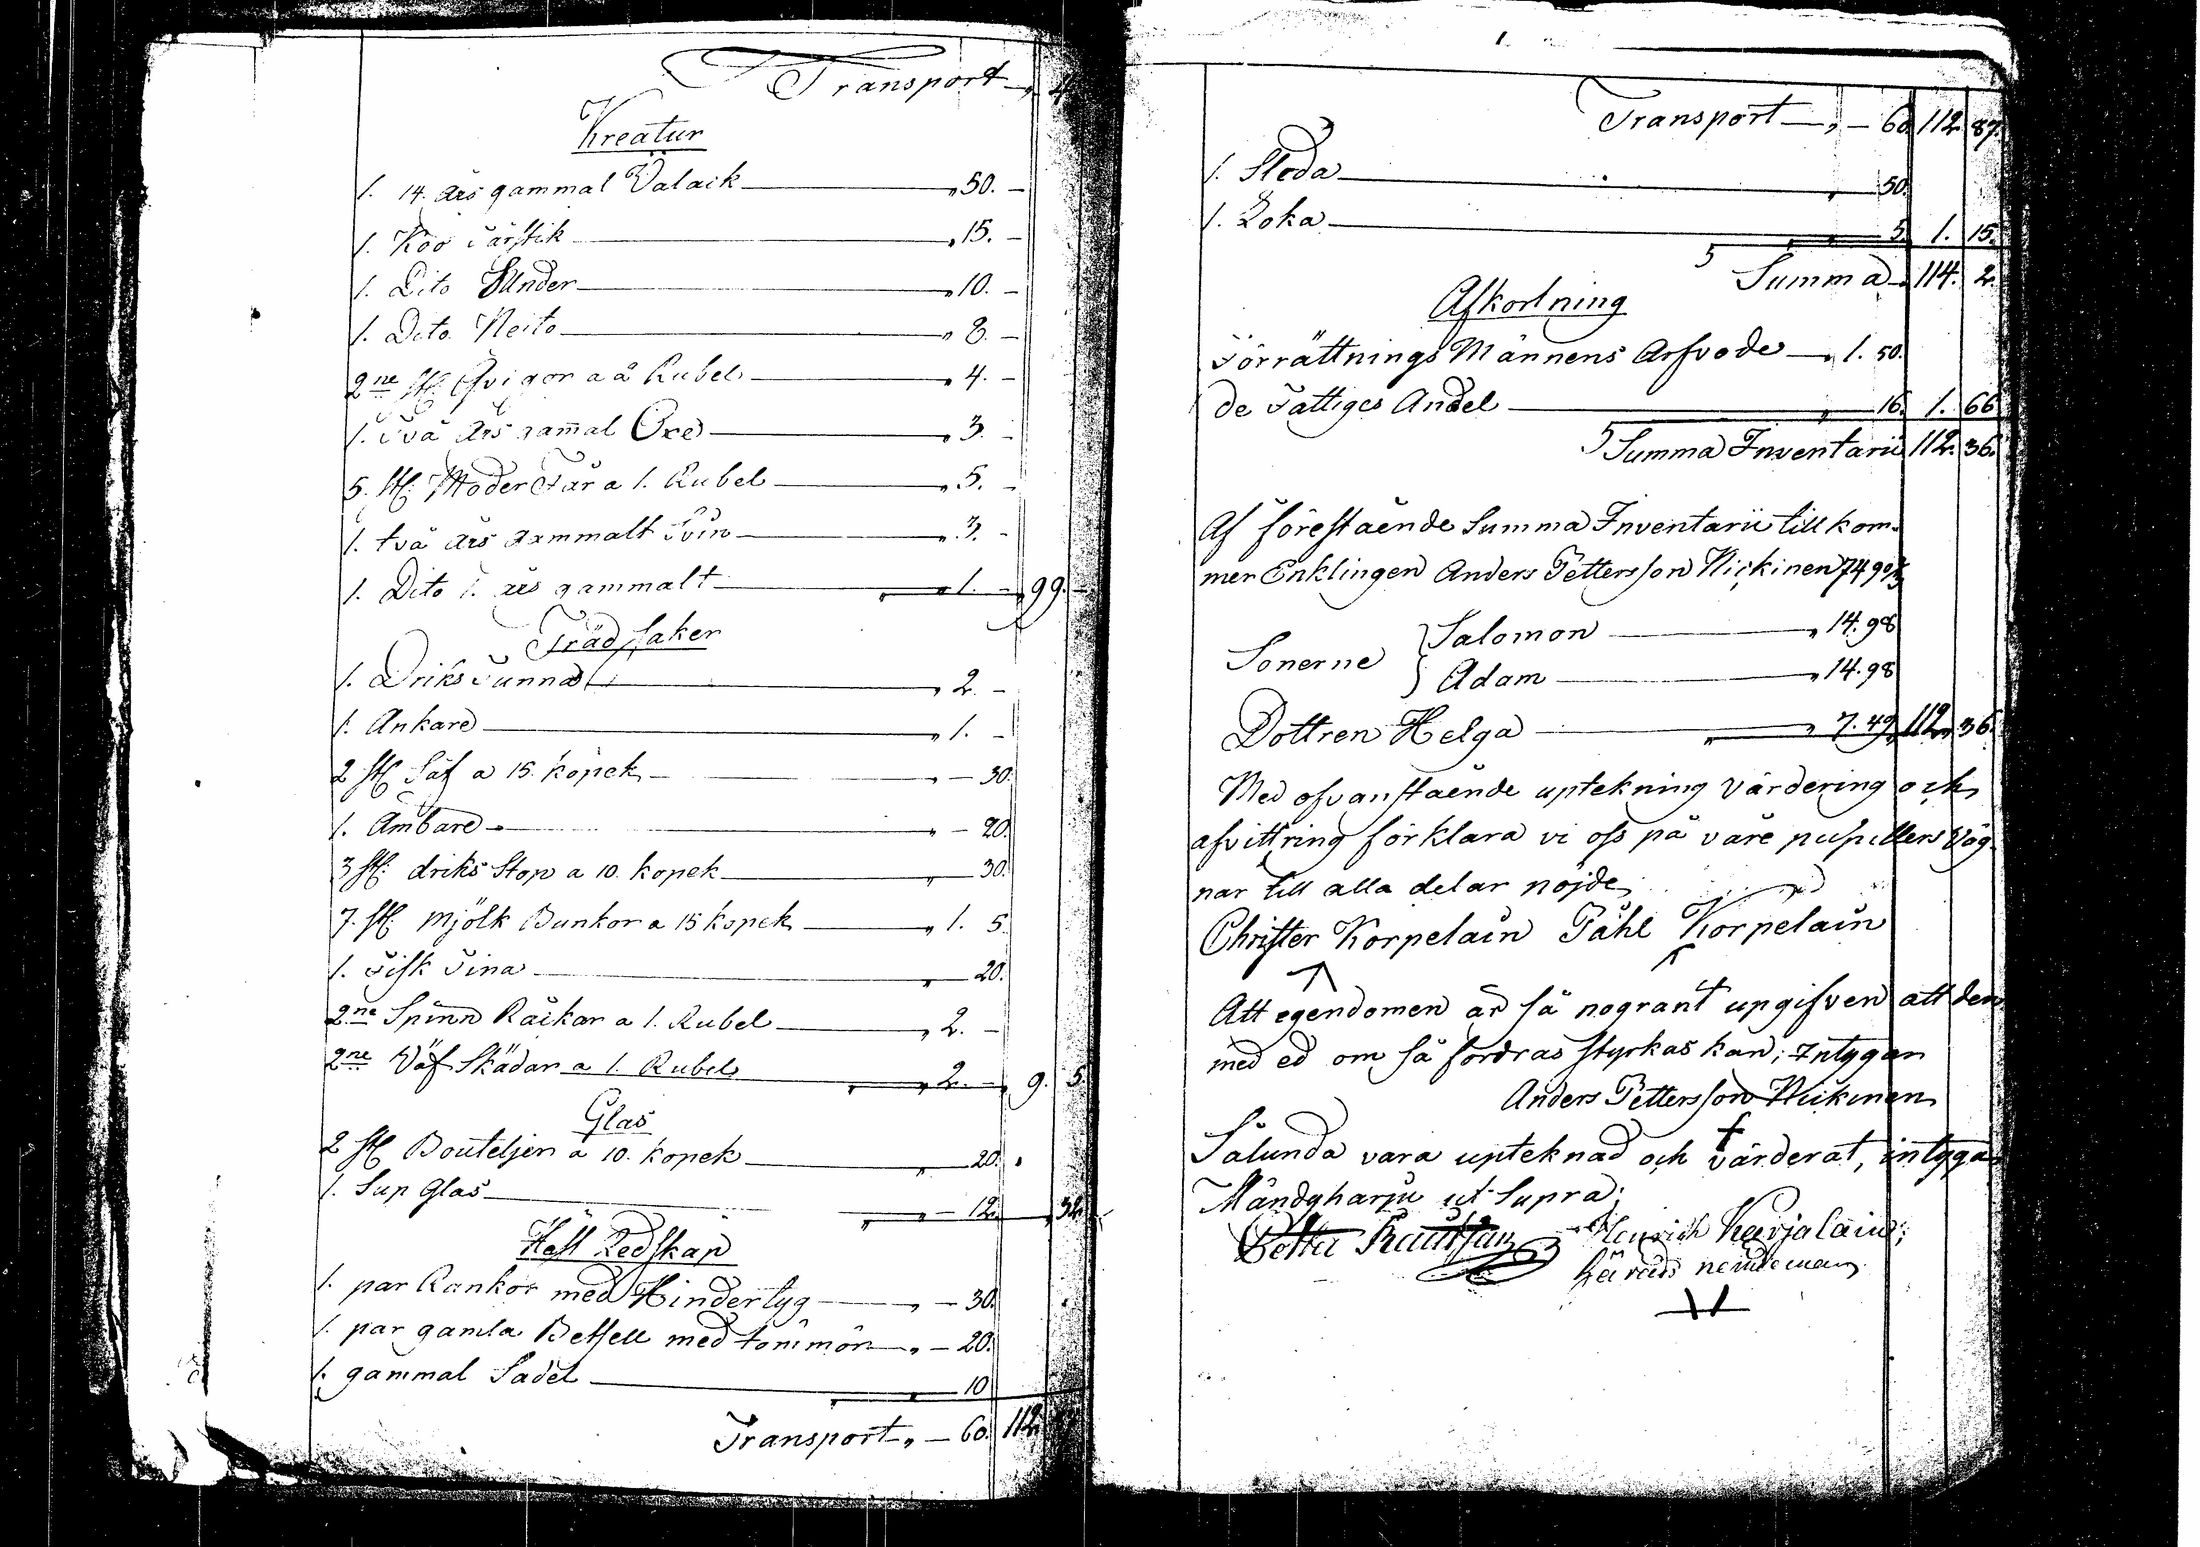 Transport — „ 4
Kreatur
1. 14. års gammal Valack — „ 50. —
1. Koo Tärstik — „ 15. —
1. Dito Under — „ 10. —
1. Dito Neito — „ 8. —
2ne st: Qvigor a 2 Rubel — „ 4. —
1. Två års gam̄al Oxe — „ 3. —
5. st: Moder Får a 1. Rubel — „ 5. —
1. två års gammalt Svin — „ 3. —
1. Dito 1. års gammalt — „ 1. — 99. —
Träd saker
1. Driks Tunna — „ 2. —
1. Ankare — „ 1. —
2 st Såf a 15. kopek — „ — 30.
1. Ämbare — „ — 20.
3 st: driks Stop a 10. kopek — „ 30.
7. st: Mjölk Bunkor a 15 kopek — „ 1. 5
1. Fisk Tina — „ 20.
2ne Spinn Råckar a 1. Rubel — „ 2. —
2ne Väf Skädar a 1. Rubel — „ 2. — 9. 5
Glas
2 st Bouteljer a 10. kopek — „ 20.
1. Sup Glas — „ — 12. 32.
Häst Redskap
1. par Rankor med Hindertyg — „ — 30.
1. par gamla Betsell med tömmar — „ — 20.
1. gammal Sadel — „ 10
Transport „ — 60. 112.
Transport — „ — 60 112. 87.
1. Sleda — „ 50.
1. Loka — „ 5. 1. 15.
Summa — 114. 2.
Afkortning
Förrättnings Männens Arfvode — „ 1. 50.
de Fattiges Andel — „ 16. 1. 66
Summa Inventarii 112. 36.
Af förestående Summa Inventarii till kom-
mer Enklingen Anders Pettersson Hickinen 74 90
Sonerne { Salomon — „ 14. 98
Adam — „ 14. 98
Dottren Helga — „ 7. 49 112. 36.
Med ofvanstående uptekning värdering och
afvittring förklara vi oss på våre pupillers väg-
nar till alla delar nöjde;
Christer Korpelain Påhl Korpelain
Att egendomen är så nogrant upgifven att den
med ed om så fordras styrkas kan; Intygar
Anders Pettersson Hickinen
Sålunda vara upteknad och värderat, intyga
Mändyharju ut Supra;
Henrich Karjalain;
härads nemdeman